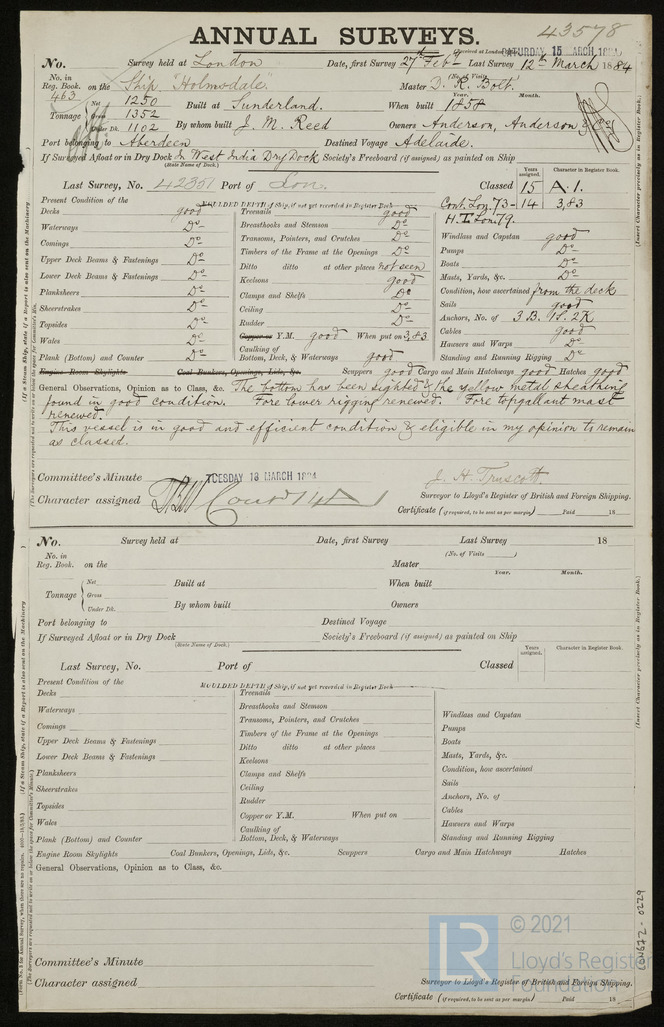 43578
ANNUAL SURVEYS.
(Received at London SATURDAY 15 MARCH
No. Survey held at London Date, first Survey 27th Feby Last Survey 12th March 1884
No. in Reg. Book. on the Ship "Holmsdale" (No. of Visits) Master D. R. Bolt.
463 Net 1250 Built at Sunderland. When built Year. 1858 Month.
Tonnage Gross 1352
Under Dk. 1102 By whom built J. M. Reed Owners Anderson, Anderson & Co
Port belonging to Aberdeen Destined Voyage Adelaide.
If Surveyed Afloat or in Dry Dock In West India Dry Dock Society's Freeboard (if assigned) as painted on Ship
(State Name of Dock.)
Years assigned. Character in Register Book.
Last Survey, No. 42351 Port of Lon. Classed 15 A.1.
Cont. Lon. 73 - 14 3,83
H.T. Lon. 79.
Present Condition of the MOULDED DEPTH of Ship, if not yet recorded in Register Book
Decks good Treenails good
Waterways Do Breasthooks and Stemson Do
Comings Do Transoms, Pointers, and Crutches Do Windlass and Capstan good
Upper Deck Beams & Fastenings Do Timbers of the Frame at the Openings Do Pumps Do
Lower Deck Beams & Fastenings Do Ditto ditto at other places not seen Boats Do
Planksheers Do Keelsons good Masts, Yards, &c. Do
Sheerstrakes Do Clamps and Shelfs Do Condition, how ascertained from the deck
Topsides Do Ceiling Do Sails good
Wales Do Rudder Do Anchors, No. of 3 B. 1 S. 2 K
Copper or Y.M. good When put on 3,83 Cables good
Plank (Bottom) and Counter Do Caulking of Bottom, Deck, & Waterways good Hawsers and Warps Do
Standing and Running Rigging Do
Engine Room Skylights Coal Bunkers, Openings, Lids, &c. Scuppers good Cargo and Main Hatchways good Hatches good
General Observations, Opinion as to Class, &c. The bottom has been sighted & the yellow metal sheathing
found in good condition. Fore lower rigging renewed. Fore topgallant mast
renewed.
This vessel is in good and efficient condition & eligible in my opinion to remain
as classed.
Committee's Minute TUESDAY 18 MARCH 1884 J. H. Truscott.
Character assigned Contd 14 A 1 Surveyor to Lloyd's Register of British and Foreign Shipping.
Certificate (if required, to be sent as per margin) Paid 18
No. Survey held at Date, first Survey Last Survey 18
No. in Reg. Book. on the (No. of Visits ) Master
Year. Month.
Net Built at When built
Tonnage Gross
Under Dk. By whom built Owners
Port belonging to Destined Voyage
If Surveyed Afloat or in Dry Dock Society's Freeboard (if assigned) as painted on Ship
(State Name of Dock.)
Years assigned. Character in Register Book.
Last Survey, No. Port of Classed
Present Condition of the MOULDED DEPTH of Ship, if not yet recorded in Register Book
Decks Treenails
Waterways Breasthooks and Stemson
Comings Transoms, Pointers, and Crutches Windlass and Capstan
Upper Deck Beams & Fastenings Timbers of the Frame at the Openings Pumps
Lower Deck Beams & Fastenings Ditto ditto at other places Boats
Planksheers Keelsons Masts, Yards, &c.
Sheerstrakes Clamps and Shelfs Condition, how ascertained
Topsides Ceiling Sails
Wales Rudder Anchors, No. of
Copper or Y.M. When put on Cables
Plank (Bottom) and Counter Caulking of Bottom, Deck, & Waterways Hawsers and Warps
Standing and Running Rigging
Engine Room Skylights Coal Bunkers, Openings, Lids, &c. Scuppers Cargo and Main Hatchways Hatches
General Observations, Opinion as to Class, &c.
Committee's Minute
Character assigned Surveyor to Lloyd's Register of British and Foreign Shipping.
Certificate (if required, to be sent as per margin) Paid 18
(Insert Character precisely as in Register Book.)
(Insert Character precisely as in Register Book.)
LON672-0229
LR © 2021
Lloyd's Register
Foundation